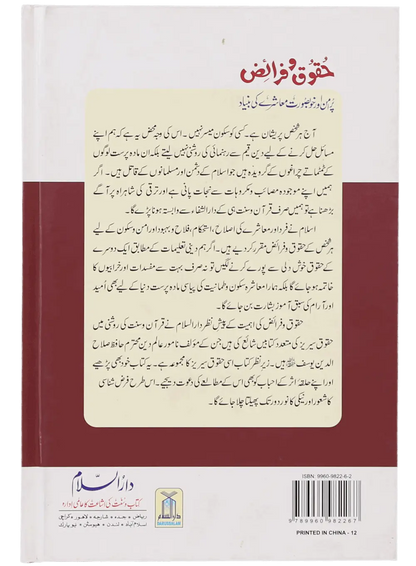 حقوق و فرائض
پُر امن اور خوبصورت معاشرے کی بنیاد
آج ہر شخص پریشان ہے۔ کسی کو سکون میسر نہیں۔ اس کی وجہ محض یہ ہے کہ ہم اپنے
مسائل حل کرنے کے لیے دینِ قیم سے رہنمائی کی روشنی نہیں لیتے بلکہ ان مادہ پرست لوگوں
کے ٹمٹماتے چراغوں کے گرویدہ ہیں جو اسلام کے دشمن اور مسلمانوں کے قاتل ہیں۔ اگر
ہمیں اپنے موجودہ مصائب و مکروہات سے نجات پانی ہے اور ترقی کی شاہراہ پر آگے
بڑھنا ہے تو ہمیں صرف قرآن و سنت ہی کے دارالشفاء سے وابستہ ہونا پڑے گا۔
اسلام نے فرد اور معاشرے کی اصلاح، استحکام، فلاح و بہبود اور امن و سکون کے لیے
ہر شخص کے حقوق و فرائض مقرر کر دیے ہیں۔ اگر ہم دینی تعلیمات کے مطابق ایک دوسرے
کے حقوق خوش دلی سے پورے کرنے لگیں تو نہ صرف بہت سے مفسدات اور خرابیوں کا
خاتمہ ہو جائے گا بلکہ ہمارا معاشرہ سکون و طمانیت کی پیاسی مادہ پرست دنیا کے لیے بھی اُمید
اور آرام کی سبق آموز بشارت بن جائے گا۔
حقوق و فرائض کی اہمیت کے پیش نظر دارالسلام نے قرآن و سنت کی روشنی میں
حقوق سیریز کی متعدد کتابیں شائع کی ہیں جن کے مؤلف نامور عالم دین محترم حافظ صلاح
الدین یوسف ﷾ ہیں۔ زیر نظر کتاب اسی حقوق سیریز کا مجموعہ ہے۔ یہ کتاب خود بھی پڑھیے
اور اپنے حلقۂ اثر کے احباب کو بھی اس کے مطالعے کی دعوت دیجیے۔ اس طرح فرض شناسی
کا شعور اور نیکی کا نور دور تک پھیلتا چلا جائے گا۔
دارُالسّلام
کتاب و سنت کی اشاعت کا عالمی ادارہ
ریاض ٭ جدہ ٭ شارجہ ٭ لاہور ٭ کراچی
اسلام آباد ٭ لندن ٭ ہیوسٹن ٭ نیویارک
دارالسلام
ISBN: 9960-9822-6-2
9 789960 982267
PRINTED IN CHINA - 12